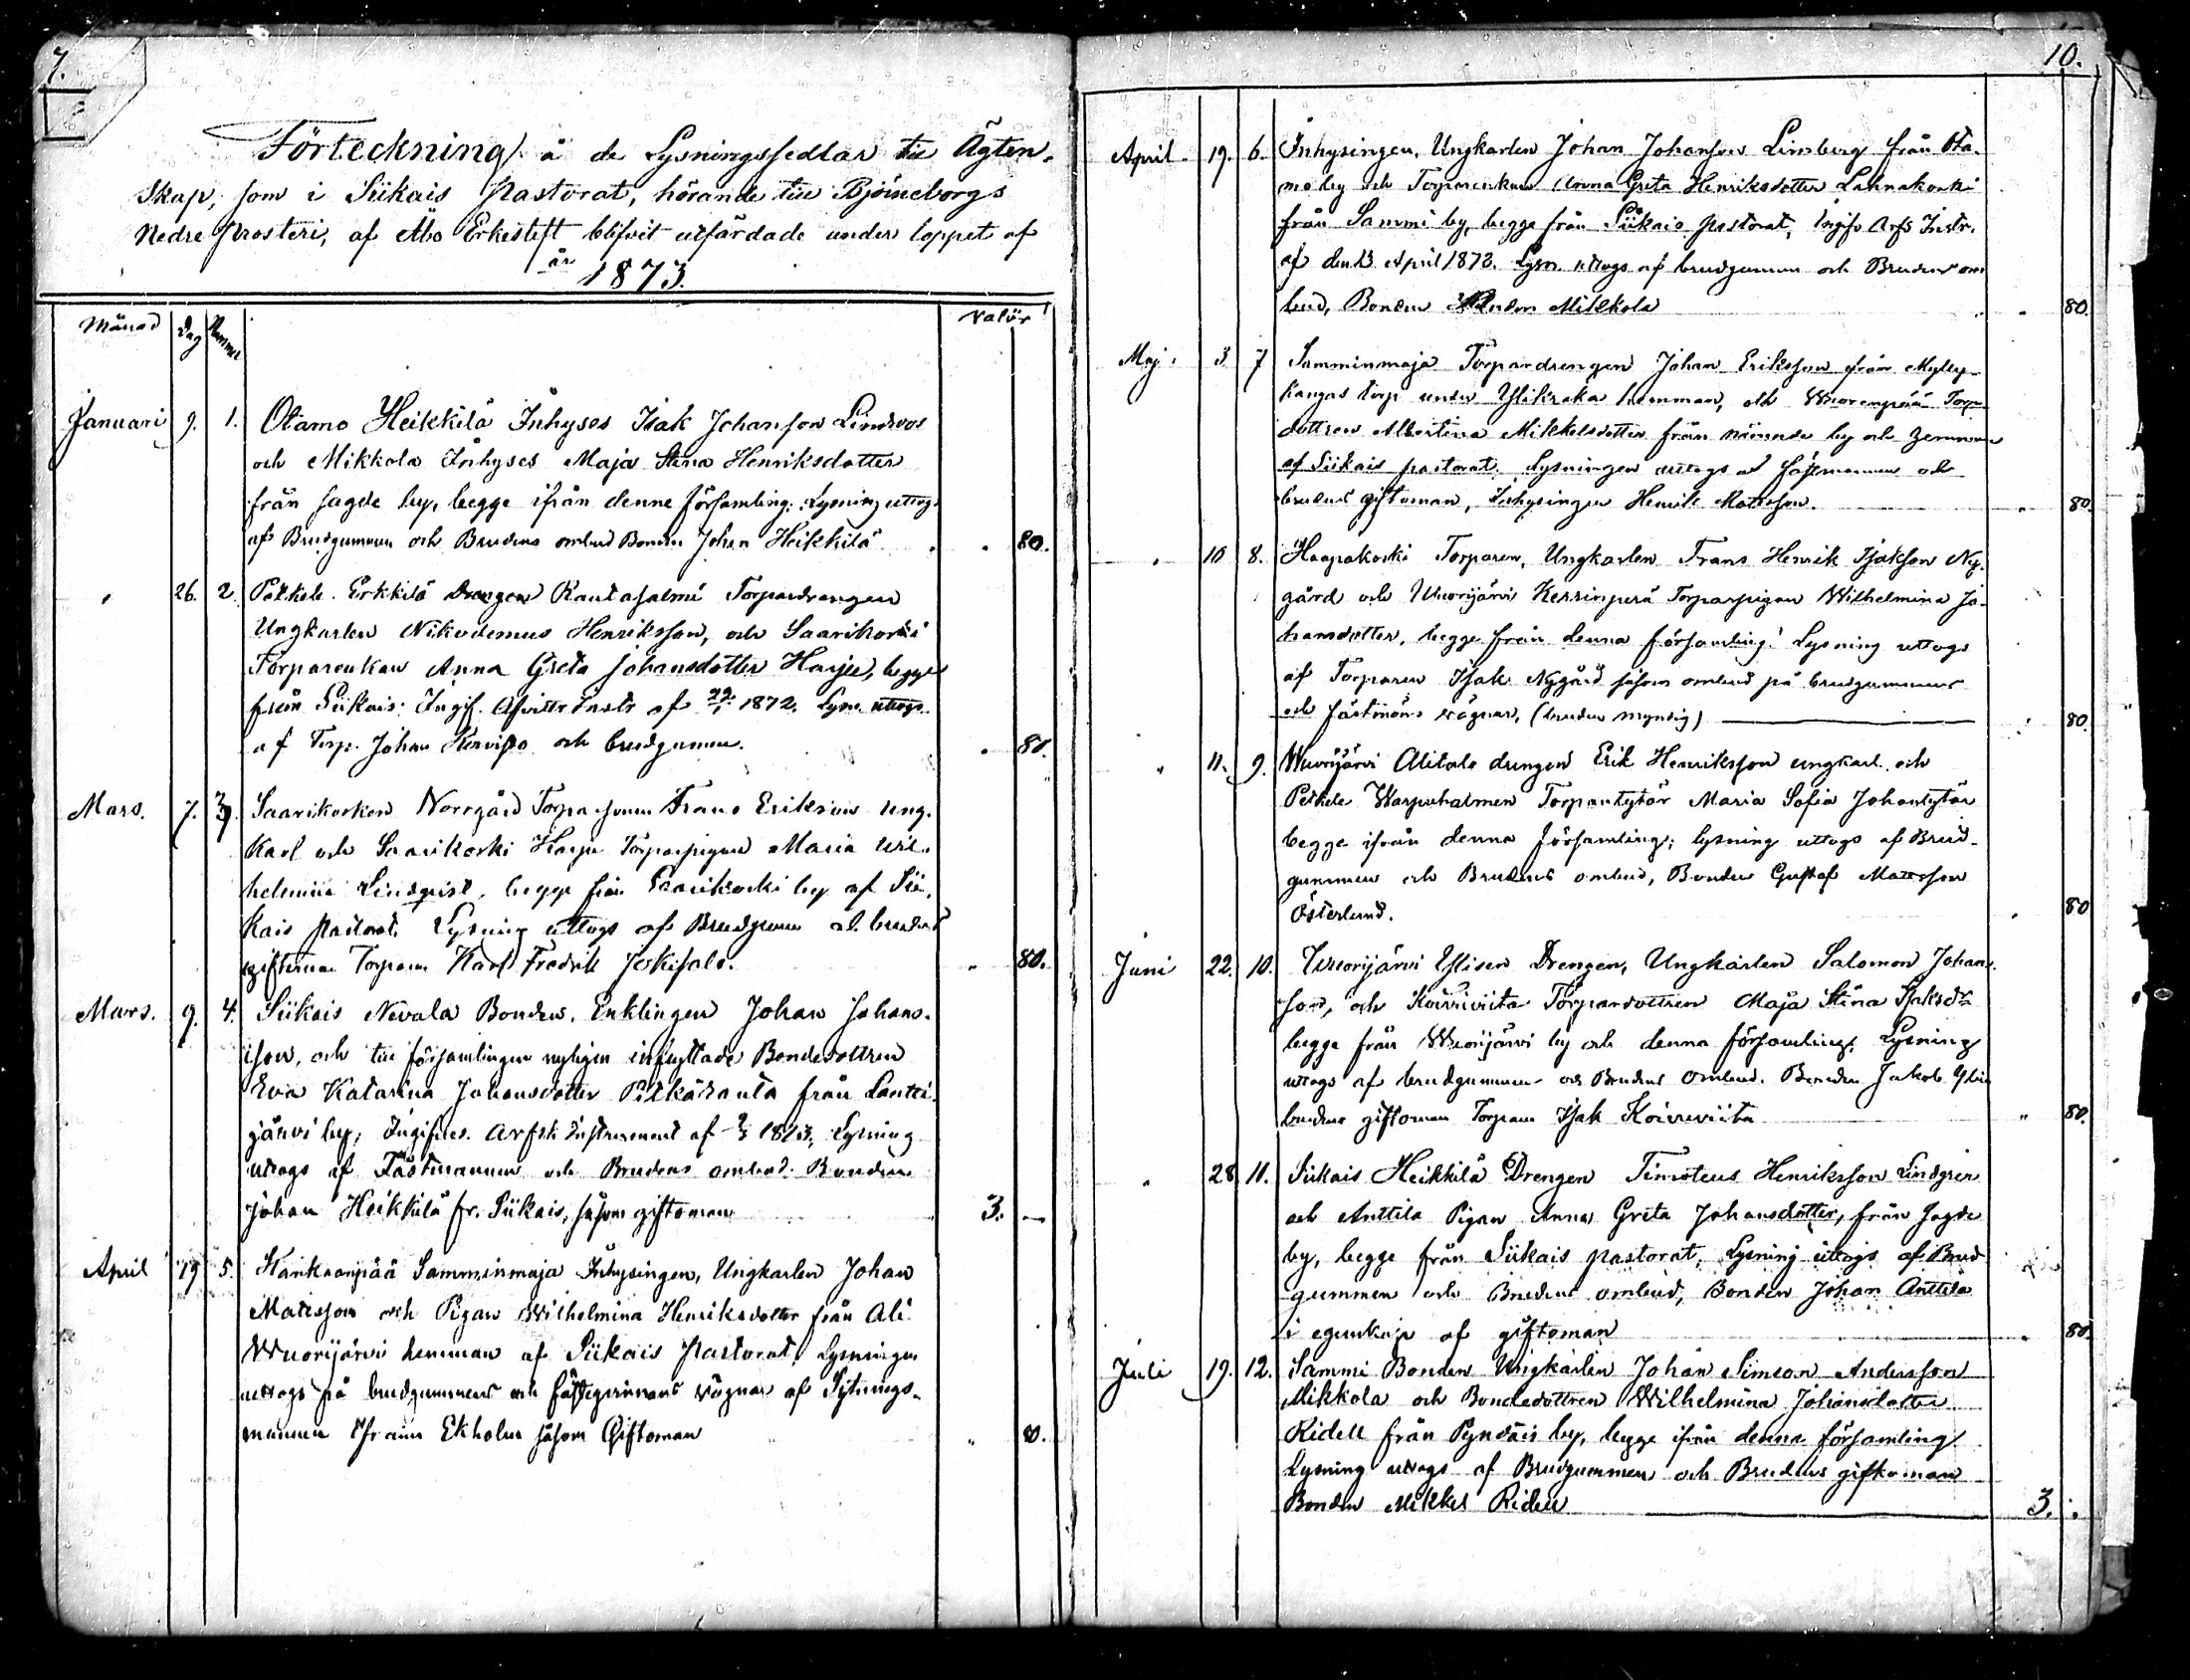 7.
Förteckning å de Lysningssedlar till Ägten-
skap, som i Siikais Pastorat, hörande till Björneborgs
Nedre Prosteri, af Åbo Erkestift blifvit utfärdade under loppet af
år 1873.
Månad Dag Nummer Valör
Januari 9. 1. Otamo Heikkilä Inhyses Isak Johansson Lindroos
och Mikkola Inhyses Maja Stina Henriksdotter
från sagde by, begge ifrån denne församling. Lysning uttogs
af Brudgummen och Brudens ombud Bonden Johan Heikkilä . . 80.
" 26. 2. Petkele Erkkilä Drengen Rautasalmi Torpardrengen
Ungkarlen Nikodemus Henriksson, och Saarikoski
Torparenkan Anna Greta Johansdotter Harju, begge
från Siikais. Ingif. Afvittr. Instr. af 1872. Lysn. uttogs
af Torp. Johan och brudgummen. . 80.
Mars. 7. 3. Saarikosken Norrgård Torpasonen Frans Eriksson ung-
karl och Saarikoski Harju Torparpigan Maria Wil-
helmina Lindqvist, begge från Saarikoski by af Sii-
kais Pastorat. Lysning uttogs af Brudgummen och brudens
giftoman Torparen Karl Fredrik Jokisalo. " 80.
Mars. 9. 4. Siikais Nevala Bonden, Enklingen Johan Johans-
son, och till församlingen nyligen inflyttade Bondedottren
Eva Katarina Johansdotter Pitkäranta från Lautti-
järvi by; Ingifves. Arfsk. Instrument af 1873, Lysning
uttogs af Fästmannen och Brudens ombud Bonden
Johan Heikkilä fr. Siikais, såsom giftoman 3. —
April 19 5. Kankaanpää Samminmaja Inhysingen, Ungkarlen Johan
Matsson och Pigan Wilhelmina Henriksdotter från Ali
Wuorijärvi hemman af Siikais Pastorat. Lysningen
uttogs på brudgummens och fästeqvinnans vägnar af Sytnings-
mannen Efraim Ekholm såsom Giftoman " 80.
10.
April 19. 6. Inhysingen, Ungkarlen Johan Johansson Limberg från Ota-
mo by och Torparenkan Anna Greta Henriksdotter Lahnakoski
från Sammi by, begge från Siikais Pastorat, Ingifv. Arfs Instr.
af den 13 April 1873. Lysn. uttogs af brudgummen och Brudens om
bud, Bonden Mikkola . 80.
Maj. 3 7 Samminmaja Torpardrengen Johan Eriksson från Mylly-
kangas torp under Ylikraka hemman, och Wuorenpää Torp-
dottren Albertina Mikkelsdotter från nämnde by och hemman
af Siikais pastorat. Lysningen uttogs af fästmannen och
brudens giftoman, Inhysingen Henrik Matsson. " 80.
" 10 8. Haapakoski Torparen, Ungkarlen Frans Henrik Isaksson Ny-
gård och Wuorijärvi Kerrinperä Torparpigan Wilhelmina Jo-
hansdotter, begge från denna församling. Lysning uttogs
af Torparen Isak Nygård såsom ombud på brudgummens
och fästmöns vägnar, (bruden myndig) " 80.
" 11. 9. Wuorijärvi Alitalo drengen Erik Henriksson ungkarl och
Petkele Warpuhalmen Torpantytär Maria Sofia Johantytär
begge ifrån denna församling; lysning uttogs af Brud-
gummen och Brudens ombud, Bonden Gustaf Mattsson
Österlund. . 80
Juni 22. 10. Wuorijärvi Ylisen Drengen, Ungkarlen Salomon Johans-
son, och Koivuviita Torpardottren Maja Stina Isaksdr
begge från Wuorijärvi by och denna församling. Lysning
uttogs af brudgummen och Brudens ombud. Bonden Jakob Ylis
brudens giftoman Torparen Isak Koivuviita " 80.
" 28. 11. Siikais Heikkilä Drengen Timoteus Henriksson Lindgren
och Anttila Pigan Anna Greta Johansdotter, från sagde
by, begge från Siikais pastorat, Lysning uttogs af Brud-
gummen och Brudens ombud, Bonden Johan Anttila
i egenskap af giftoman . 80.
Juli 19. 12. Sammi Bonden Ungkarlen Johan Simeon Andersson
Mikkola och Bondedottren Wilhelmina Johansdotter
Ridell från Pyndäis by, begge ifrån denna församling.
Lysning uttogs af Brudgummen och Brudens giftoman
Bonden Mikkel Ridell 3. .